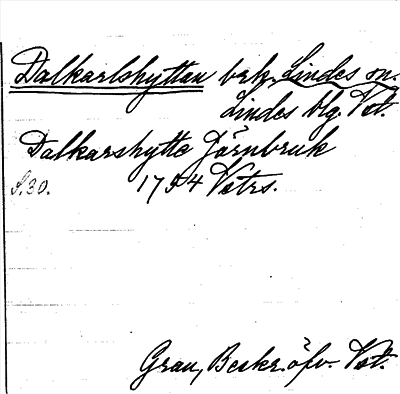 Dalkarlshyttan brk, Lindes sn.
Lindes blg. Vst.
Dalkarshytte Järnbruk
S. 30. 1754 Vstrs.
Grau, Beskr. öfv. Vst.